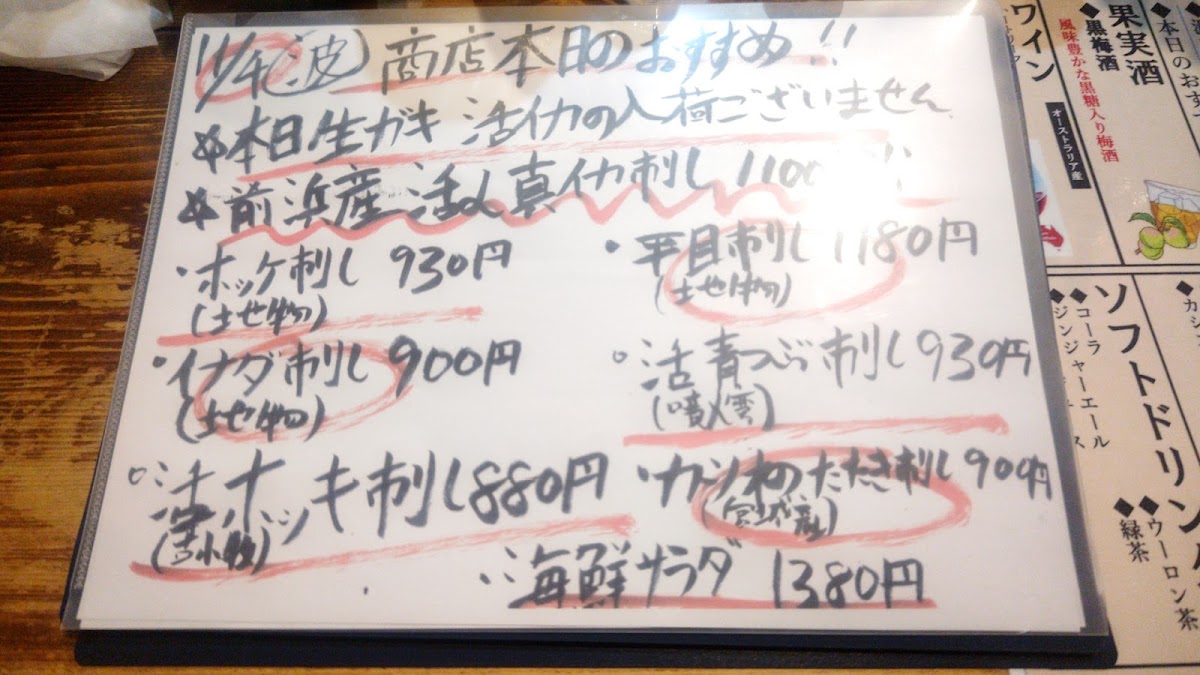 11/4 波 商店本日のおすすめ!!
☆本日生ガキ 活イカの入荷ございません
☆前浜産活〆真イカ刺し 1100
・ホッケ刺し 930円
(土地物)
・平目刺し 1180円
(土地物)
・イナダ刺し 900円
(土地物)
○活青つぶ刺し 930円
(噴火湾)
○活ホッキ刺し 880円
(苫小牧)
・カツオのたたき刺し 900円
(宮城産)
・海鮮サラダ 1380円
ワイン
オーストラリア産
果実酒
◆黒梅酒
風味豊かな黒糖入り梅酒
◆本日のおす
ソフトドリン
◆コーラ
◆ジンジャーエール
◆ウーロン茶
◆緑茶